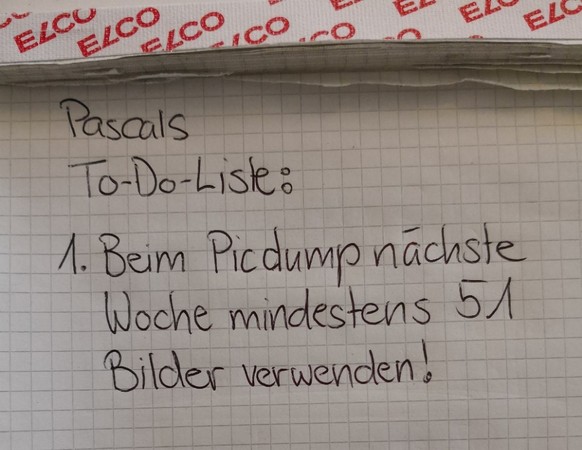 ELCO ELCO ELCO ELCO ELCO ELCO ELCO ELCO
Pascals
To-Do-Liste:
1. Beim Picdump nächste
Woche mindestens 51
Bilder verwenden!